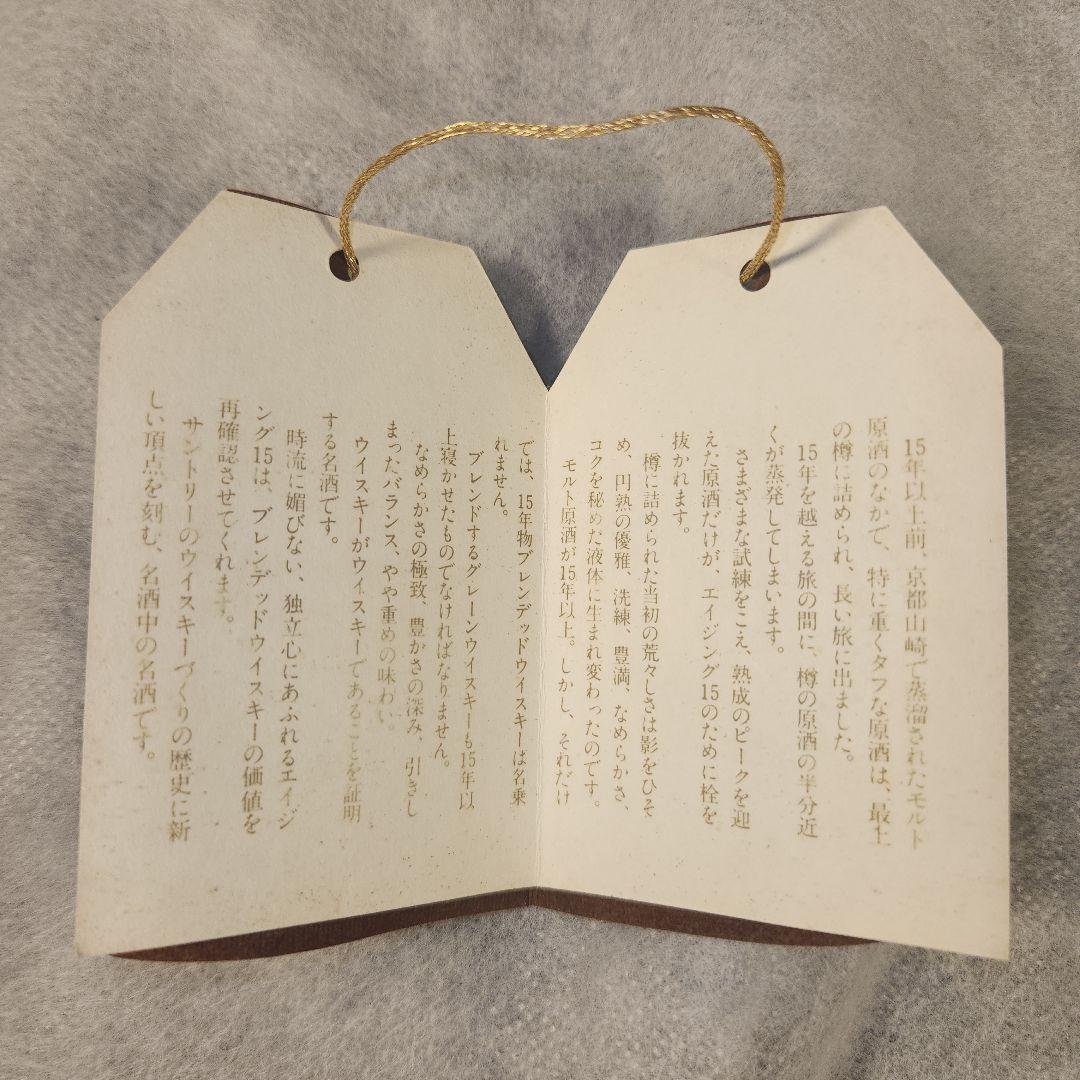 15年以上前、京都山崎で蒸溜されたモルト
原酒のなかで、特に重くタフな原酒は、最上
の樽に詰められ、長い旅に出ました。
15年を越える旅の間に、樽の原酒の半分近
くが蒸発してしまいます。
さまざまな試練をこえ、熟成のピークを迎
えた原酒だけが、エイジング15のために栓を
抜かれます。
樽に詰められた当初の荒々しさは影をひそ
め、円熟の優雅、洗練、豊満、なめらかさ、
コクを秘めた液体に生まれ変わったのです。
モルト原酒が15年以上。しかし、それだけ
では、15年物ブレンデッドウイスキーは名乗
れません。
ブレンドするグレーンウイスキーも15年以
上寝かせたものでなければなりません。
なめらかさの極致、豊かさの深み、引きし
まったバランス、やや重めの味わい。
ウイスキーがウィスキーであることを証明
する名酒です。
時流に媚びない、独立心にあふれるエイジ
ング15は、ブレンデッドウイスキーの価値を
再確認させてくれます。
サントリーのウイスキーづくりの歴史に新
しい頂点を刻む、名酒中の名酒です。